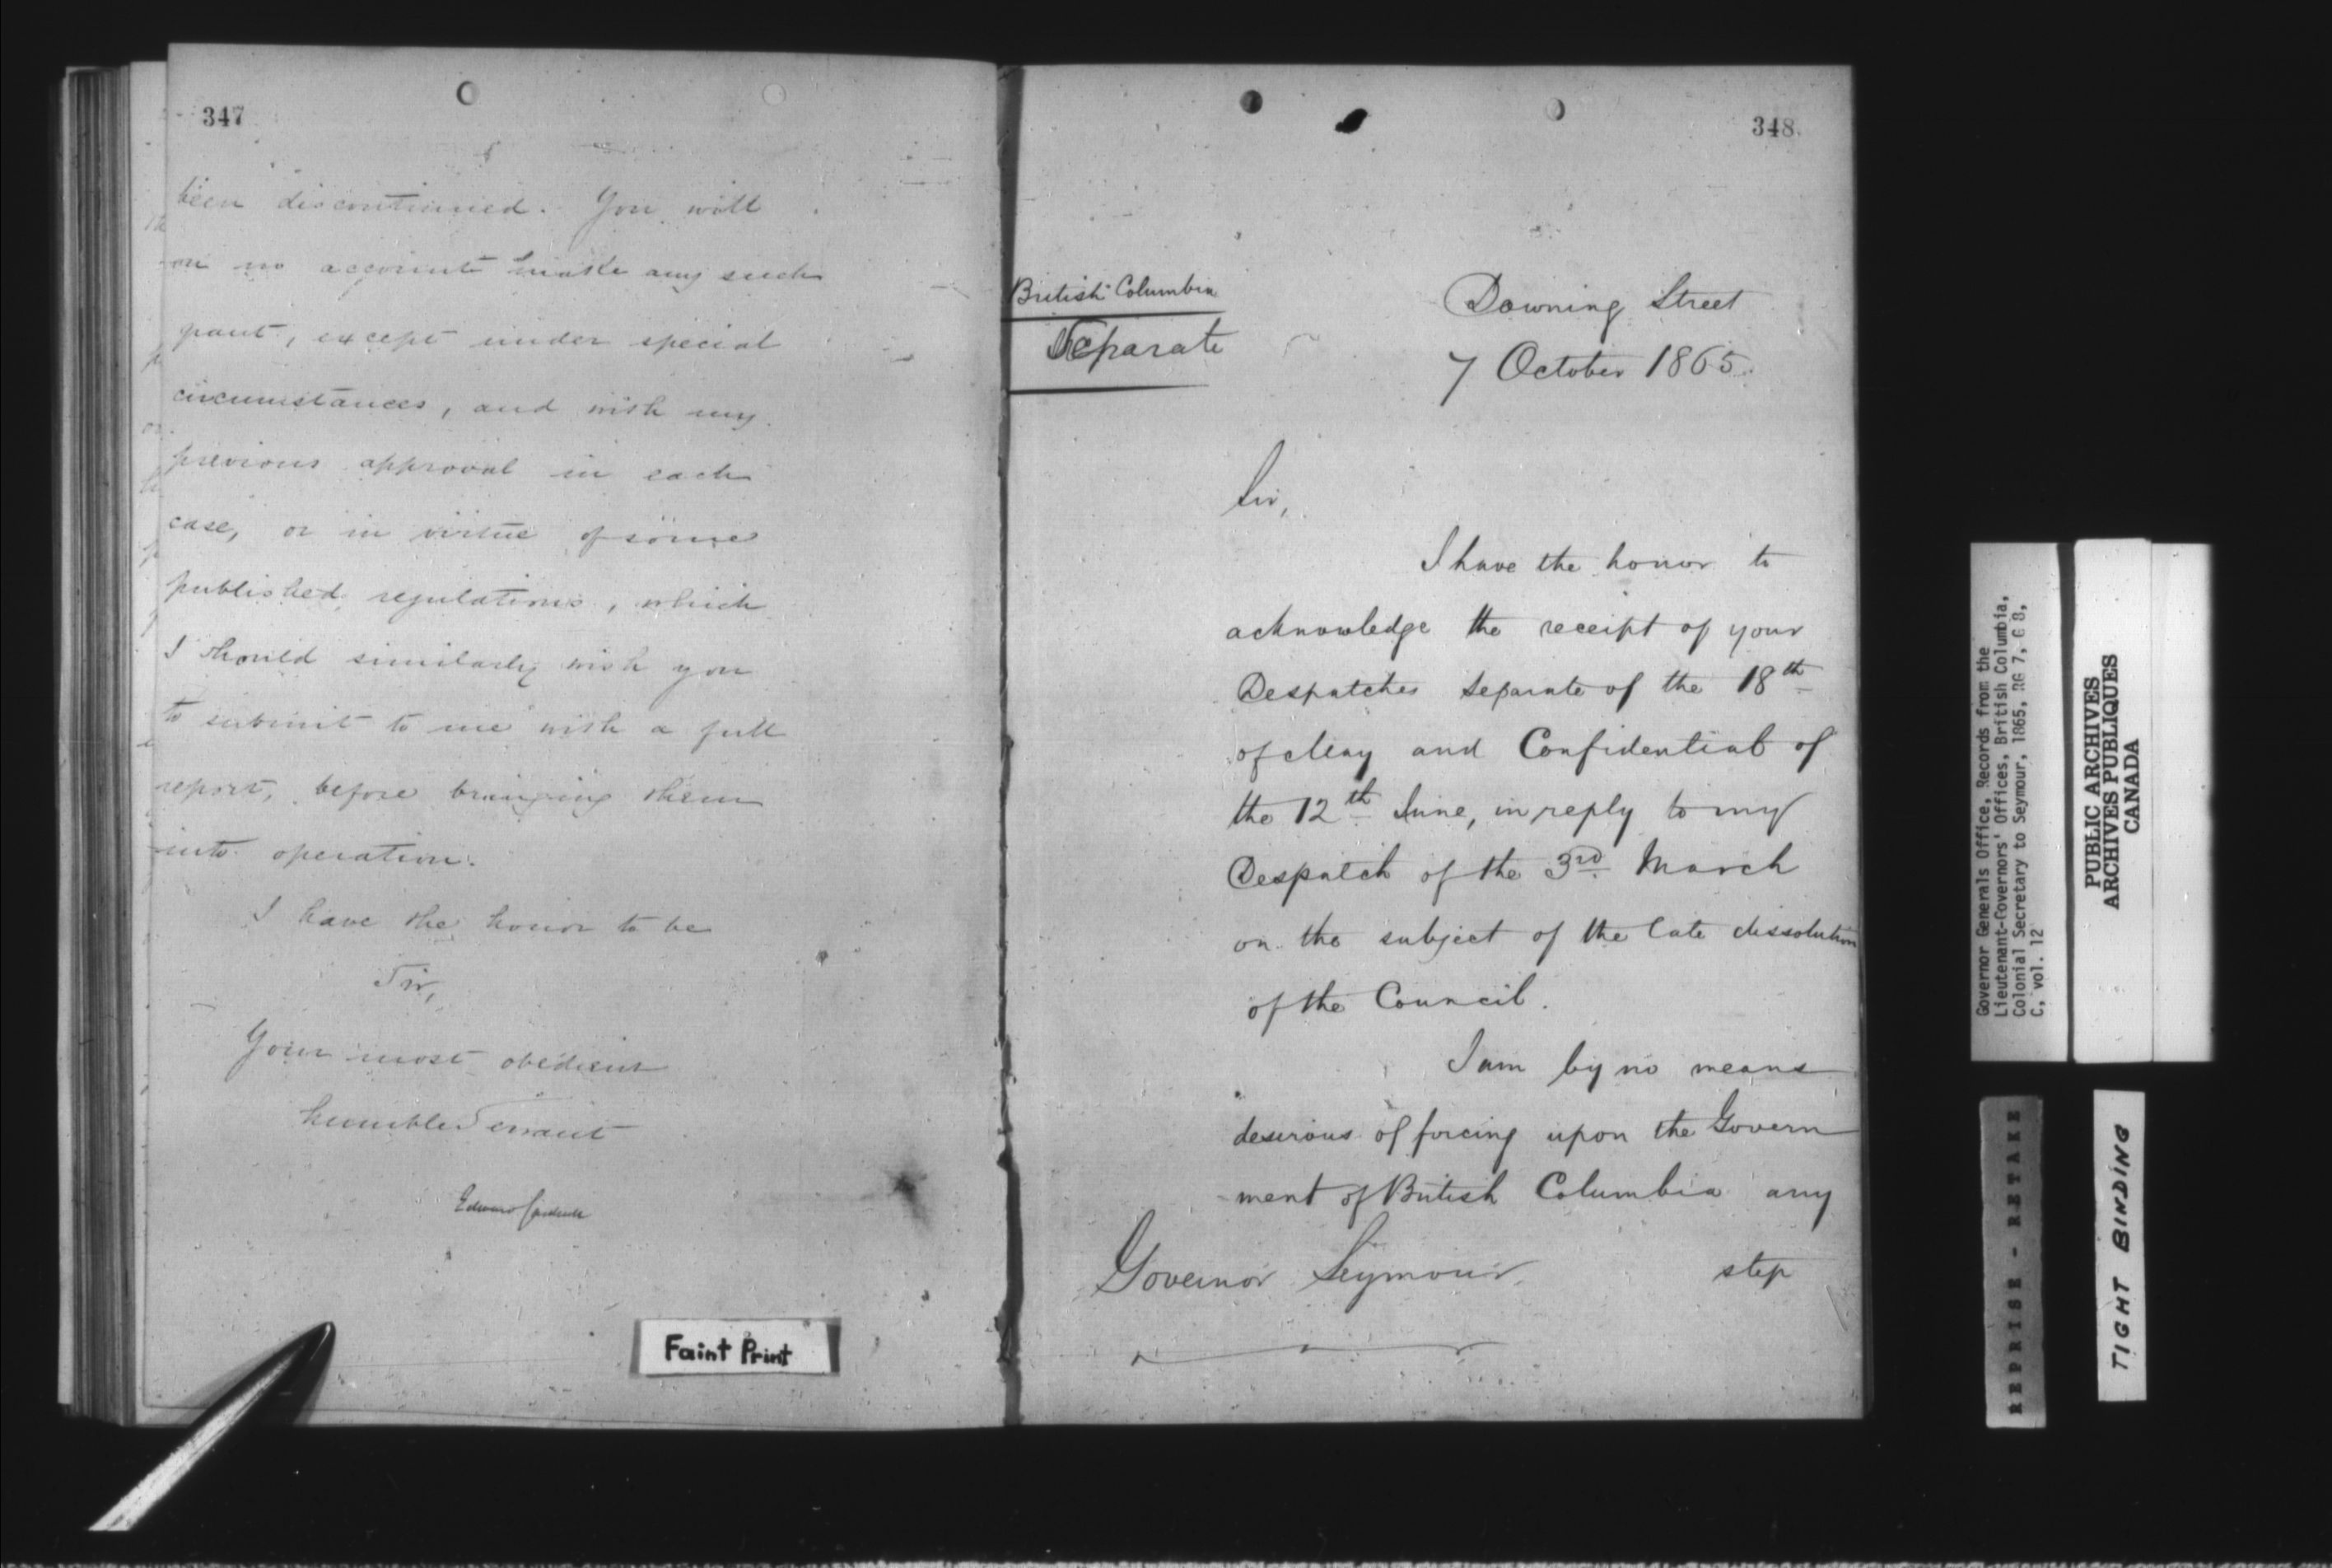 347
been discontinued. You will
on no account make any such
grant, except under special
circumstances, and with my
previous approval in each
case, or in virtue of some
published regulations, which
I should similarly wish you
to submit to me with a full
report, before bringing them
into operation.
I have the honor to be
Sir,
Your most obedient
humble Servant
Edward Cardwell
Faint Print
348
British Columbia
Separate
Downing Street
7 October 1865.
Sir,
I have the honor to
acknowledge the receipt of your
Despatches Separate of the 18th
of May and Confidential of
the 12th June, in reply to my
Despatch of the 3rd March
on the subject of the late dissolution
of the Council.
I am by no means
desirous of forcing upon the Govern
ment of British Columbia any
step
Governor Seymour
Governor Generals Office, Records from the
Lieutenant-Governors' Offices, British Columbia,
Colonial Secretary to Seymour, 1865, RG 7, G 8,
C, vol. 12
PUBLIC ARCHIVES
ARCHIVES PUBLIQUES
CANADA
REPRISE - RETAKE
TIGHT BINDING